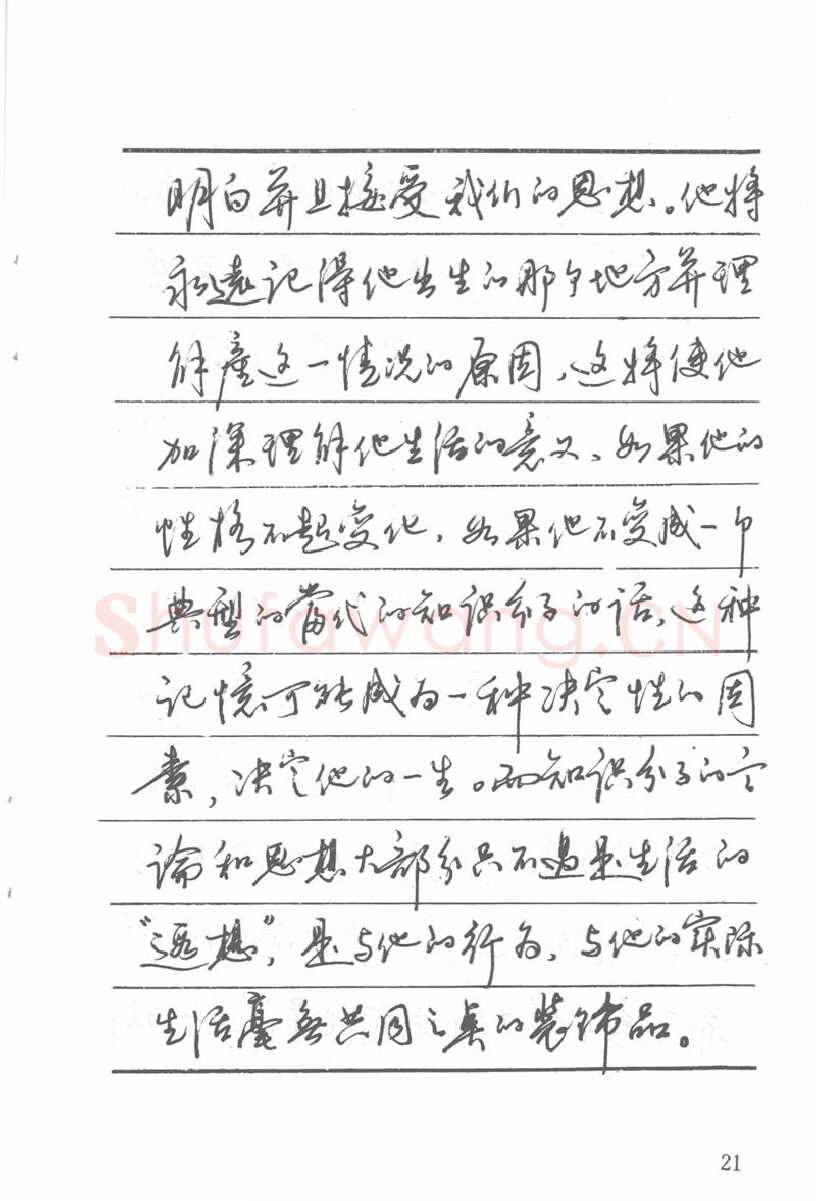 明白并且接受我们的思想。他将
永远记得他出生的那个地方并理
解產这一情况的原因、这将使他
加深理解他生活的意义、如果他的
性格不起变化，如果他不变成一个
典型的當代的知识分子的话，这种
记憶可能成为一种决定性的因
素，决定他的一生。而知识分子的言
论和思想大部分只不過是生活的
“遐想”，是与他的行为、与他的实际
生活毫無共同之点的装饰品。
Shufawang.CN
21